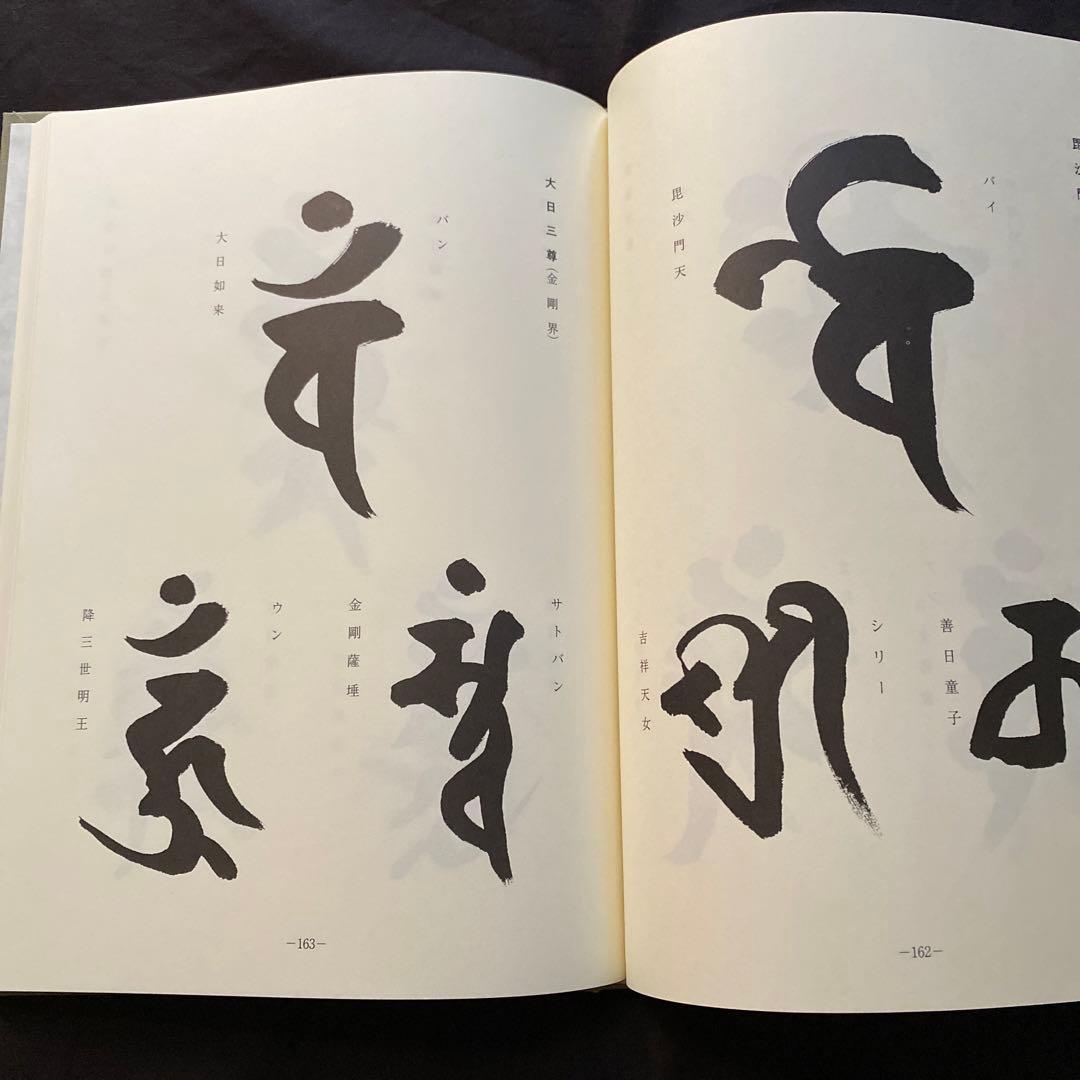 毘沙門
バイ
𑖪𑖹
毘沙門天
善日童子
シリー
𑖫𑖿𑖨𑖱
吉祥天女
−162−
大日三尊(金剛界)
バン
𑖪𑖼
大日如来
サトバン
𑖭𑖝𑖿𑖪𑖽
金剛薩埵
ウン
𑖮𑖳𑖼
降三世明王
−163−